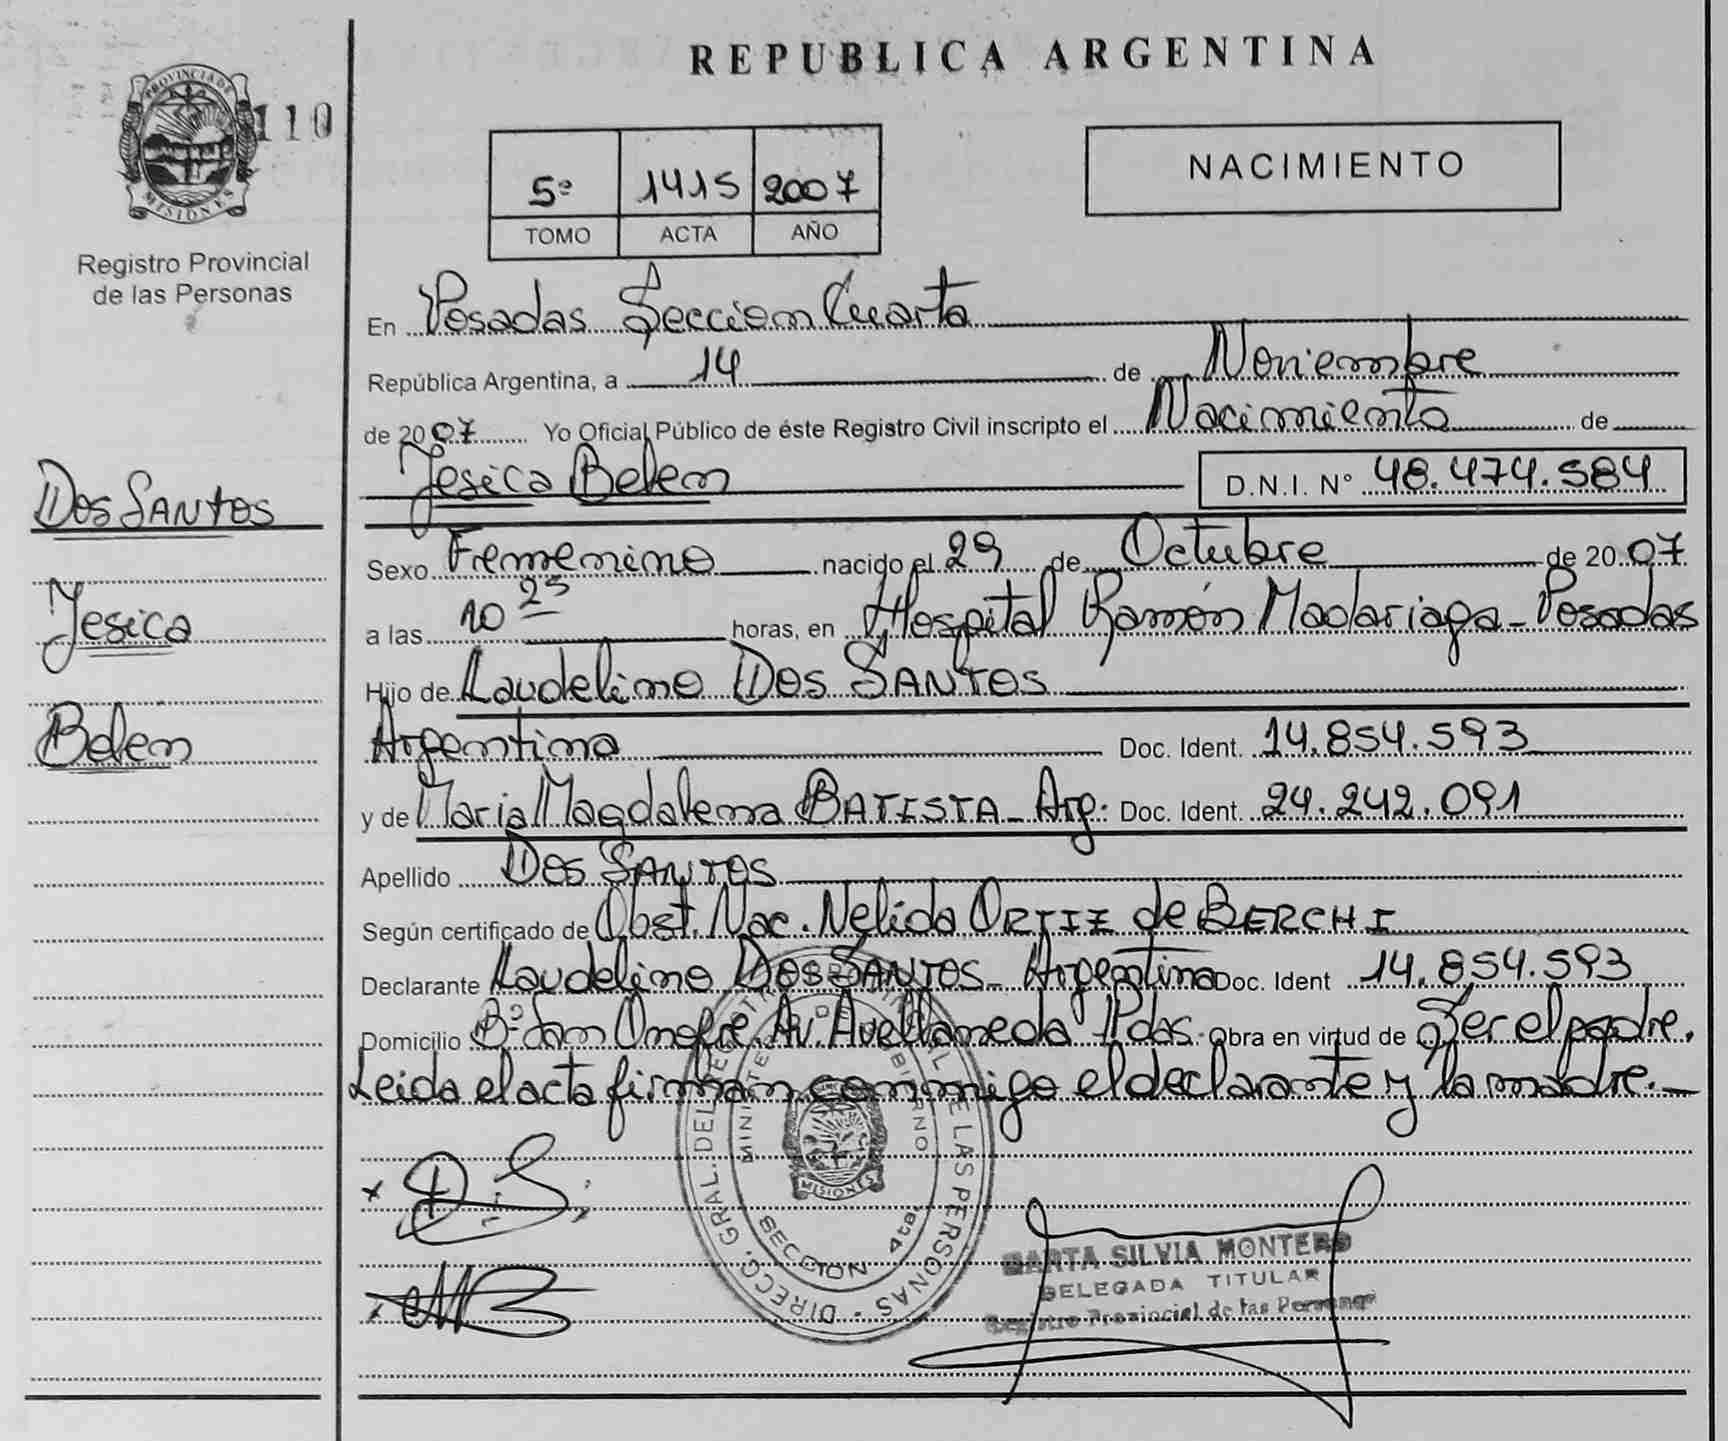 PROVINCIA DE
MISIONES
110
Registro Provincial
de las Personas
Dos SANTOS
Jesica
Belen
REPUBLICA ARGENTINA
5º 1415 2007
TOMO ACTA AÑO
NACIMIENTO
En Posadas Seccion Cuarta
República Argentina, a 14 de Noviembre
de 2007 Yo Oficial Público de éste Registro Civil inscripto el Nacimiento de
Jesica Belen D.N.I. Nº 48.474.584
Sexo Femenino nacido el 29 de Octubre de 2007
a las 10 25 horas, en Hospital Ramón Madariaga - Posadas
Hijo de Laudelino Dos SANTOS
Argentino Doc. Ident. 14.854.593
y de Maria Magdalena BATISTA - Arg. Doc. Ident. 24.242.091
Apellido Dos SANTOS
Según certificado de Obst. Nac. Nelida ORTIZ de BERCHI
Declarante Laudelino Dos SANTOS - Argentino Doc. Ident 14.854.593
Domicilio Bº San Onofre. Av. Avellaneda Pdas. Obra en virtud de Ser el padre.
Leida el acta firman conmigo el declarante y la madre.-
DIRECC. GRAL. DEL REGISTRO PROVINCIAL DE LAS PERSONAS
MINISTERIO DE GOBIERNO
MISIONES
SECCION 4ta.
x D.S.
x MB
MARTA SILVIA MONTERO
DELEGADA TITULAR
Registro Provincial de las Personas